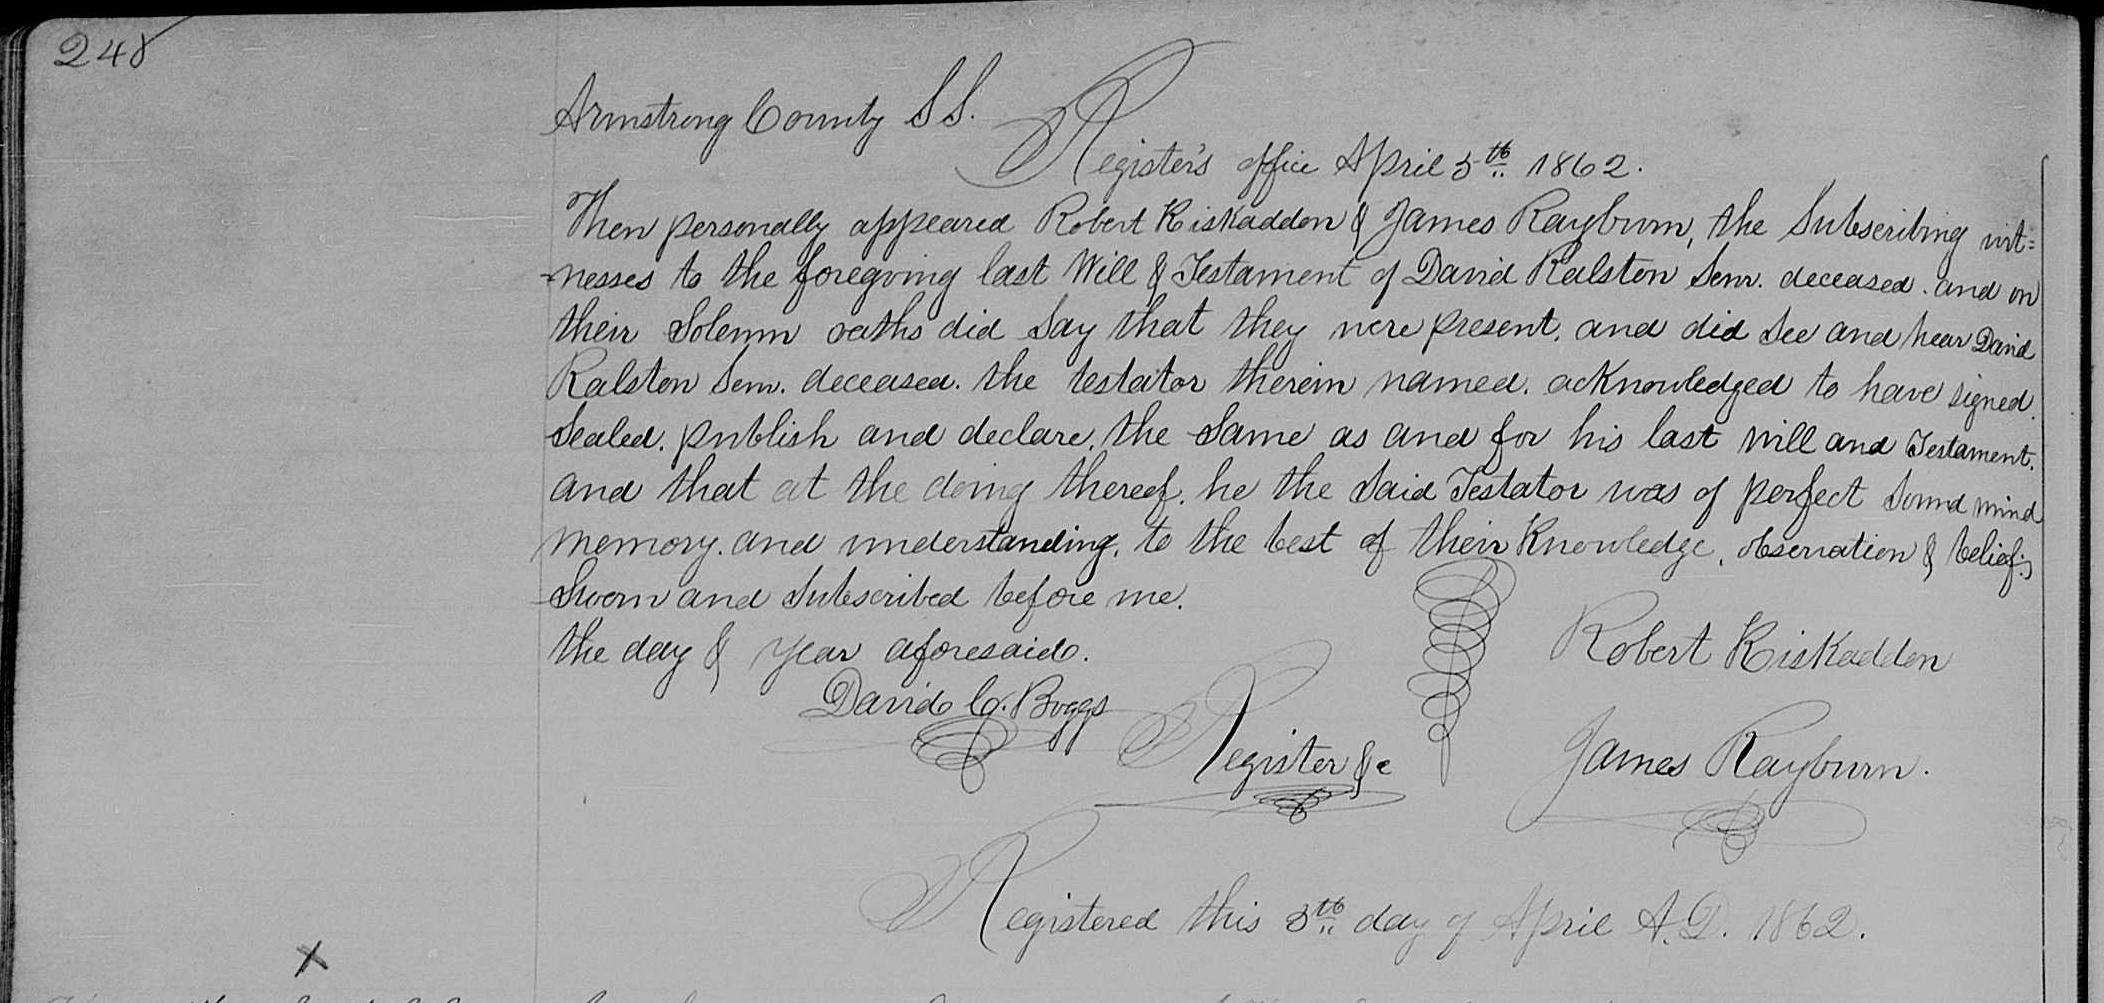 248
Armstrong County S S.
Register's office April 5th 1862.
Then personally appeared Robert Kiskaddon & James Rayburn, the Subscribing wit=
-nesses to the foregoing last Will & Testament of David Ralston Senr. deceased. and on
their Solemn oaths did Say that they were present. and did See and hear David
Ralston Senr. deceased. the testator therein named. acknowledged to have signed.
Sealed. publish and declare. the Same as and for his last will and Testament.
and that at the doing thereof. he the Said Testator was of perfect Sound mind
memory. and understanding. to the best of their Knowledge, observation & belief;
Sworn and Subscribed before me.
the day & year aforesaid.
Robert Kiskaddon
David C. Boggs
Register &c
James Rayburn.
Registered this 5th day of April A.D. 1862.
X